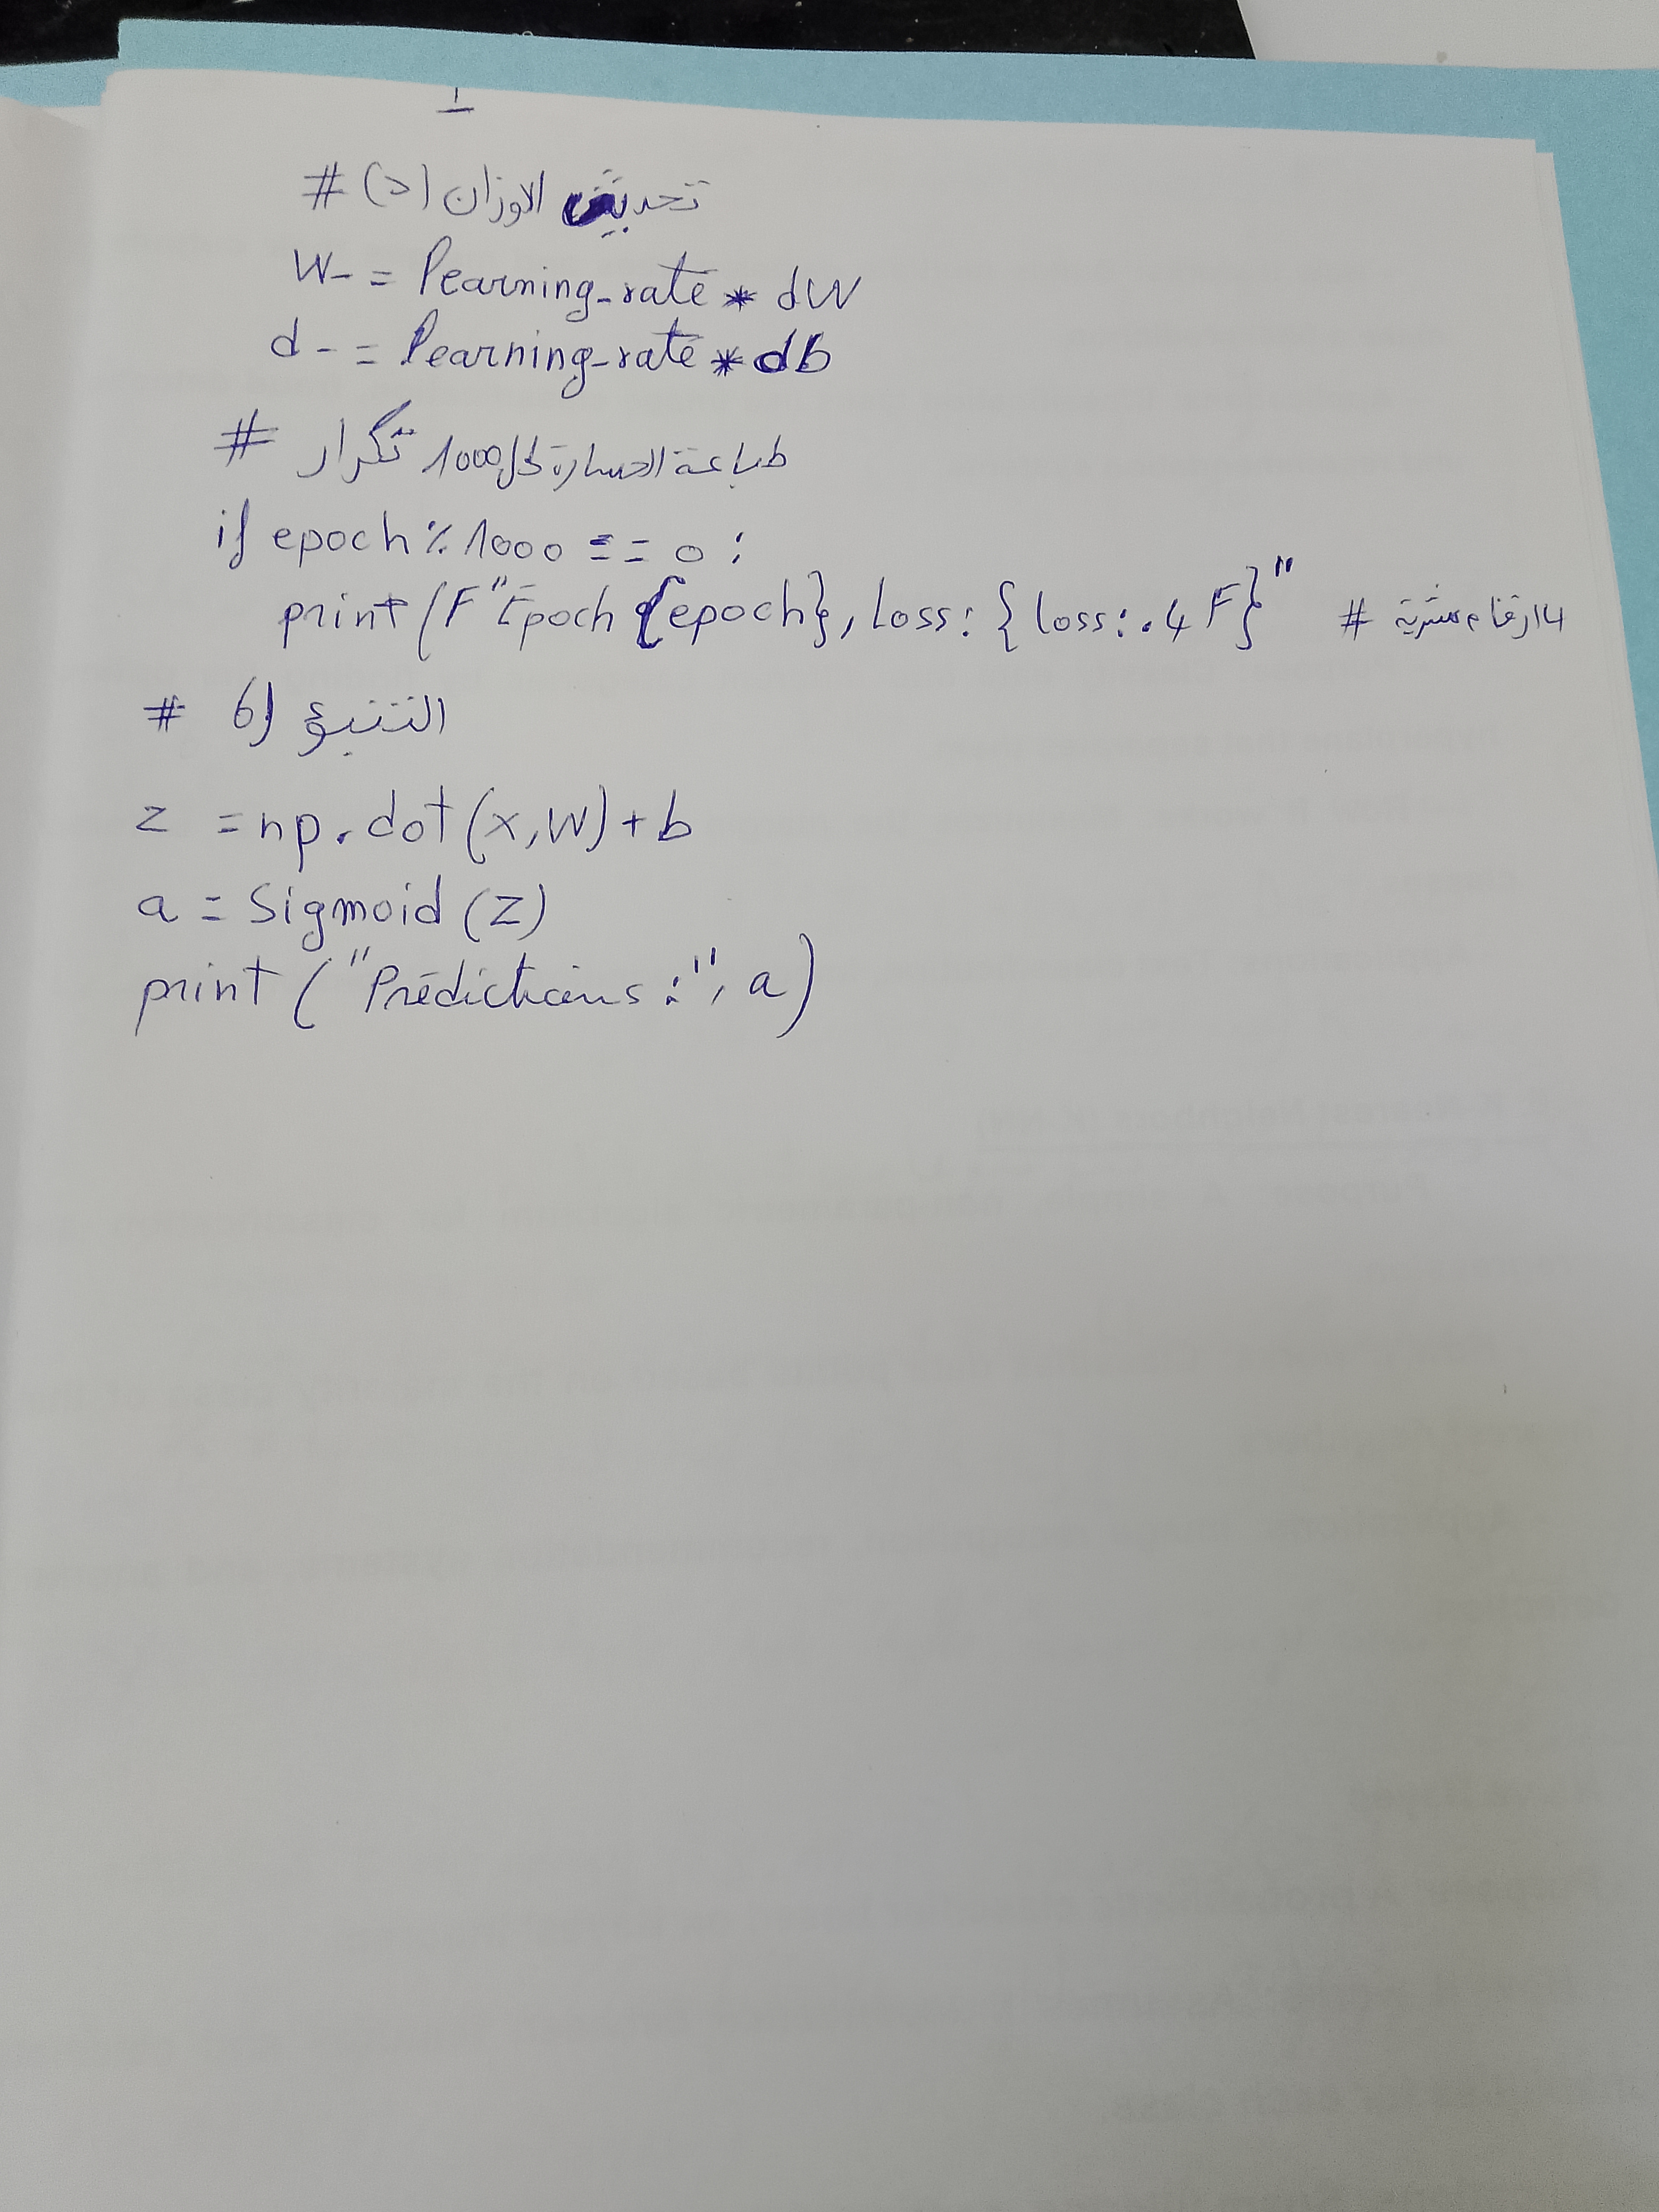 # (د) تحديث الاوزان
W-= learning_rate * dW
d-= learning_rate * db
# طباعة الخسارة لكل 1000 تكرار
if epoch % 1000 == 0 :
print(F"Epoch {epoch}, loss: {loss:.4F}" # 4 ارقام عشرية
# 6) التنبؤ
z = np.dot(x,W)+b
a = Sigmoid(z)
print("Prédictions :", a)